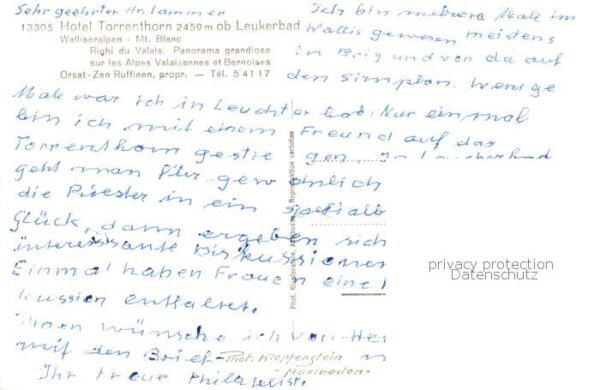 Sehr geehrter Hr. Lammer
13305 Hotel Torrenthorn 2459 m ob Leukerbad
Walliseralpen - Mt. Blanc
Righi du Valais. Panorama grandiose
sur les Alpes Valaisannes et Bernoises
Orsat-Zen Ruffinen, propr. — Tél. 5 41 17
Ich bin mehrere Male im
Wallis gewesen meistens
in Brig und von da auf
den Simplon. Wenige
Male war ich in Leuchterbad. Nur einmal
bin ich mit einem Freund auf das
Torrenthorn gestiegen. In Leucherbad
geht man für gewöhnlich
die Priester in ein
Glück, dann ergeben sich
interessante Diskussionen
Einmal haben Frauen eine
kussion enthaltet.
Ihnen wünsche ich von
mit den Brief
Ihr treue Philatelist.
Phot. Klopfenstein, Adelboden. Reproduktion verboten
Phot. Klopfenstein
Adelboden.
privacy protection
Datenschutz